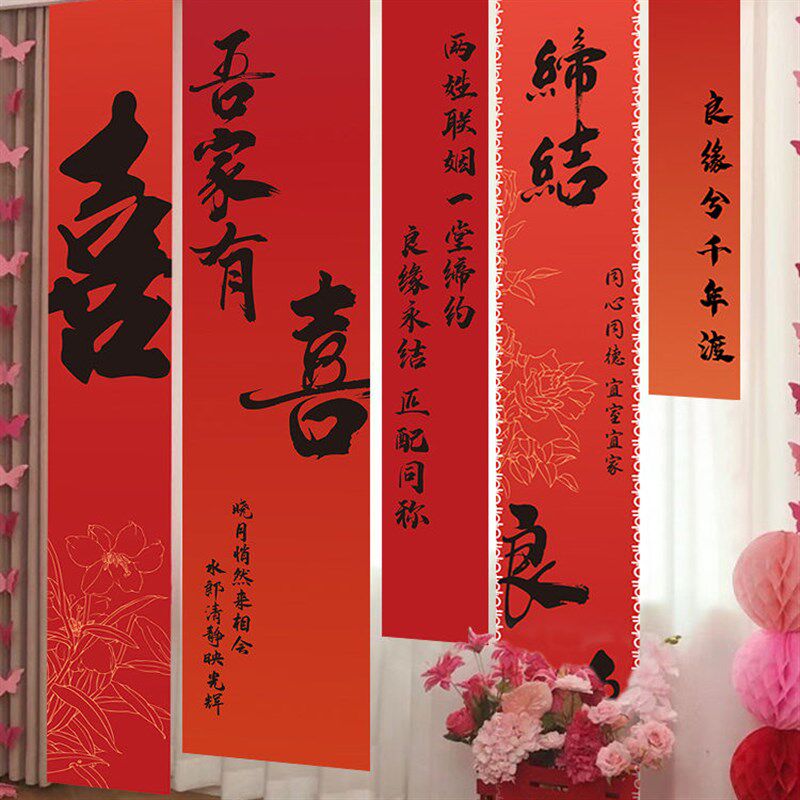 喜
吾家有
喜
晓月悄然来相会
水郎清静映光辉
两姓联姻一堂缔约
良缘永结 匹配同称
締結
同心同德 宜室宜家
良
良缘兮千年渡